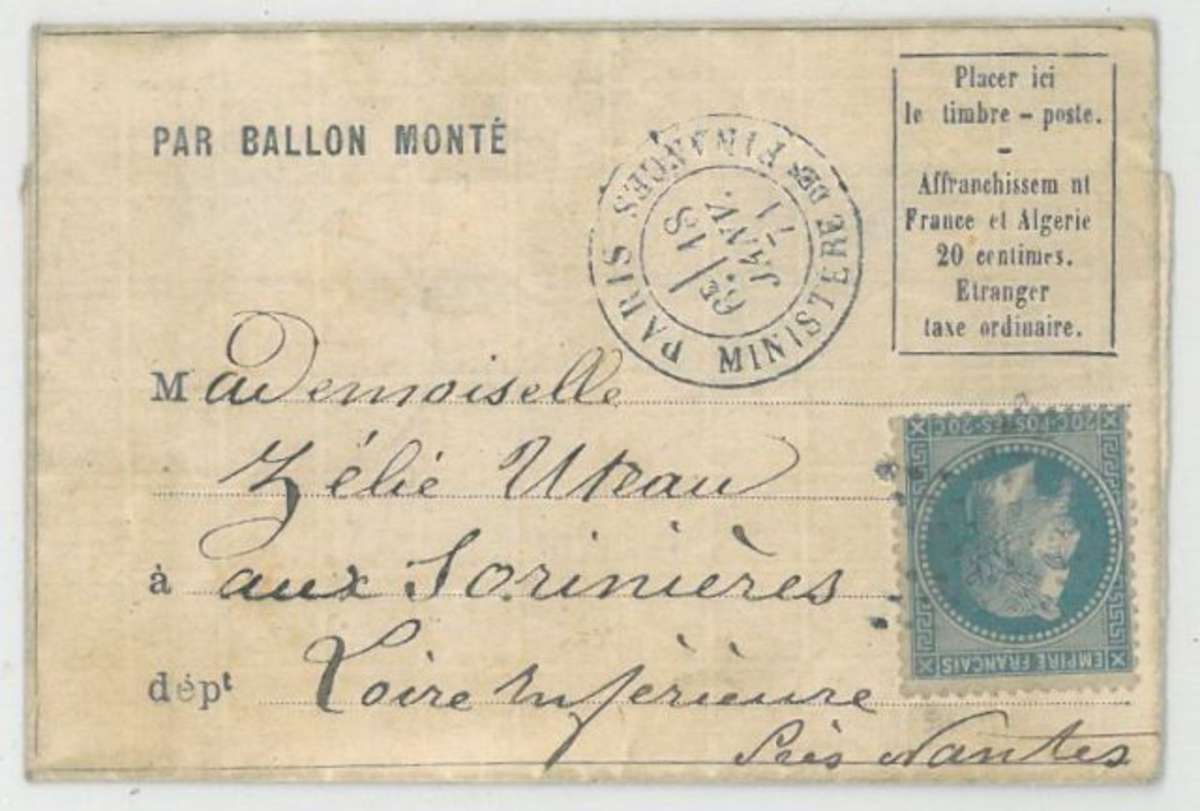 PAR BALLON MONTÉ
Placer ici
le timbre - poste.
-
Affranchissem nt
France et Algerie
20 centimes.
Etranger
taxe ordinaire.
PARIS MINISTERE DES FINANCES
6E
18
JANV.
71
Mademoiselle
Zélie
à aux Sorinières
dépt Loire Inférieure
Près Nantes
20C·POSTES·20C
EMPIRE FRANCAIS